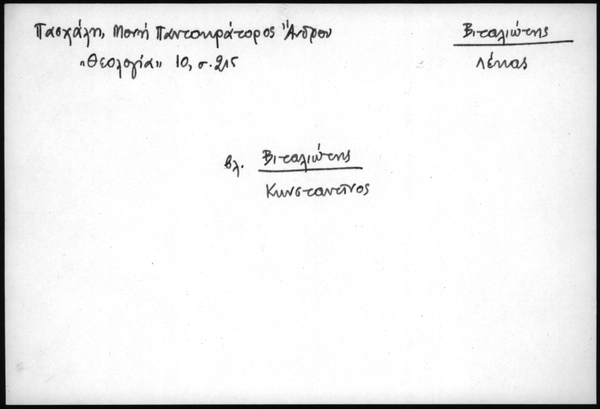 Πασχάλη, Μονή Παντοκράτορος Ἄνδρου
"Θεολογία" 10, σ. 215
Βιταλιώτης
Λέκκας
βλ. Βιταλιώτης
Κωνσταντῖνος